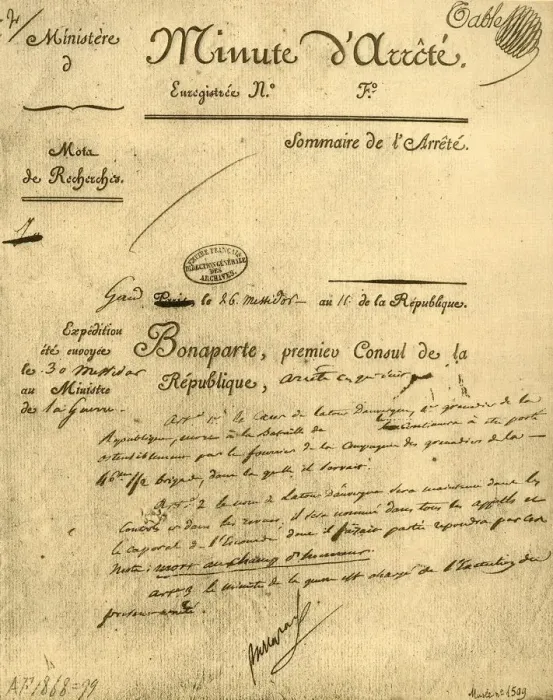 2/
Table
Ministère
d
Minute d'Arrêté.
Enregistrée N.º F.º
Mota
de Recherches.
Sommaire de l'Arrêté.
EMPIRE FRANÇAIS
DIRECTION GÉNÉRALE
DES
ARCHIVES
Gand le 26 Messidor au 11 de la République.
Expédition
été envoyée
le 30 Messidor
au Ministre
de la Guerre.
Bonaparte, premier Consul de la
République, arrête ce qui suit
Art. 1er Le Cœur de latour d'auvergne, 1er grenadier de la
République, mort à la Bataille de continuera à être porté
ostensiblement par le fourrier de la Compagnie des grenadiers de la
46eme 1/2 brigade, dans laquelle il servait.
Art. 2 le nom de Latour d'auvergne sera maintenu dans les
Controles et dans les revues; il sera nommé dans tous les appels et
le caporal de l'Escouade dont il faisait partie repondra par ces
mots: mort au champ d'honneur.
art. 3 le ministre de la guerre est chargé de l'Exécution du
présent arrêté.
AF. 1868=99
Musée nº 1509